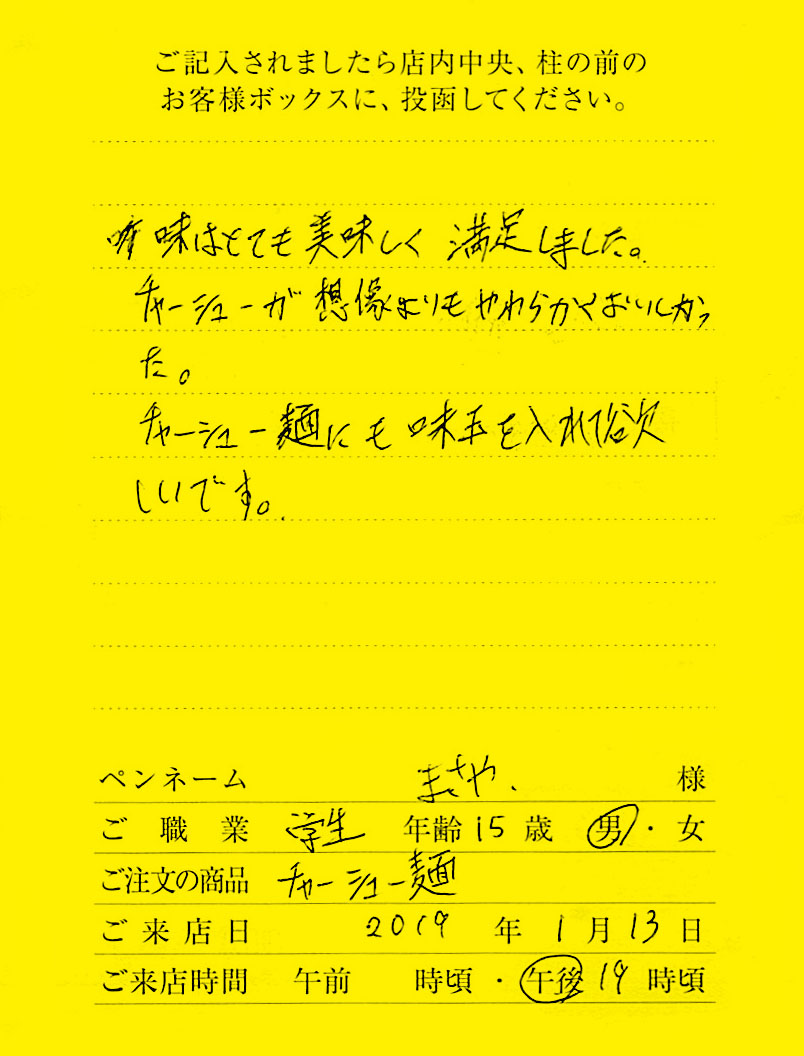 ご記入されましたら店内中央、柱の前の
お客様ボックスに、投函してください。
味はとても美味しく 満足しました。
チャーシューが想像よりもやわらかくおいしかっ
た。
チャーシュー麺にも味玉を入れて欲
しいです。
ペンネーム まさや. 様
ご職業 学生 年齢 15 歳 男・女
ご注文の商品 チャーシュー麺
ご来店日 2019 年 1 月 13 日
ご来店時間 午前 時頃・午後 19 時頃